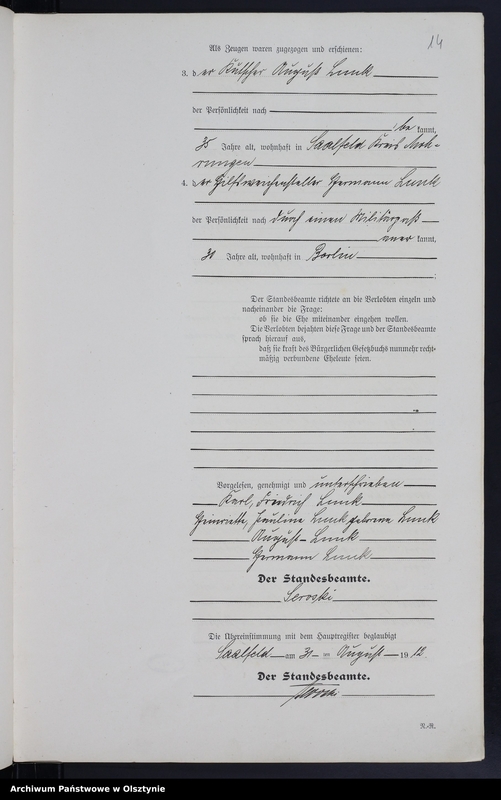 14
Als Zeugen waren zugezogen und erschienen:
3. der Kutscher August Lunk
der Persönlichkeit nach
be kannt,
35 Jahre alt, wohnhaft in Saalfeld Kreis Moh-
rungen
4. der Hilfsweichensteller Hermann Lunk
der Persönlichkeit nach durch einen Militärpaß
aner kannt,
30 Jahre alt, wohnhaft in Berlin
Der Standesbeamte richtete an die Verlobten einzeln und
nacheinander die Frage:
ob sie die Ehe miteinander eingehen wollen.
Die Verlobten bejahten diese Frage und der Standesbeamte
sprach hierauf aus,
daß sie kraft des Bürgerlichen Gesetzbuchs nunmehr recht-
mäßig verbundene Eheleute seien.
Vorgelesen, genehmigt und unterschrieben
Karl, Friedrich Lunk
Henriette, Pauline Lunk geborene Lunk
August Lunk
Hermann Lunk
Der Standesbeamte.
Die Übereinstimmung mit dem Hauptregister beglaubigt
Saalfeld am 31 ten August 1912
Der Standesbeamte.
Archiwum Państwowe w Olsztynie